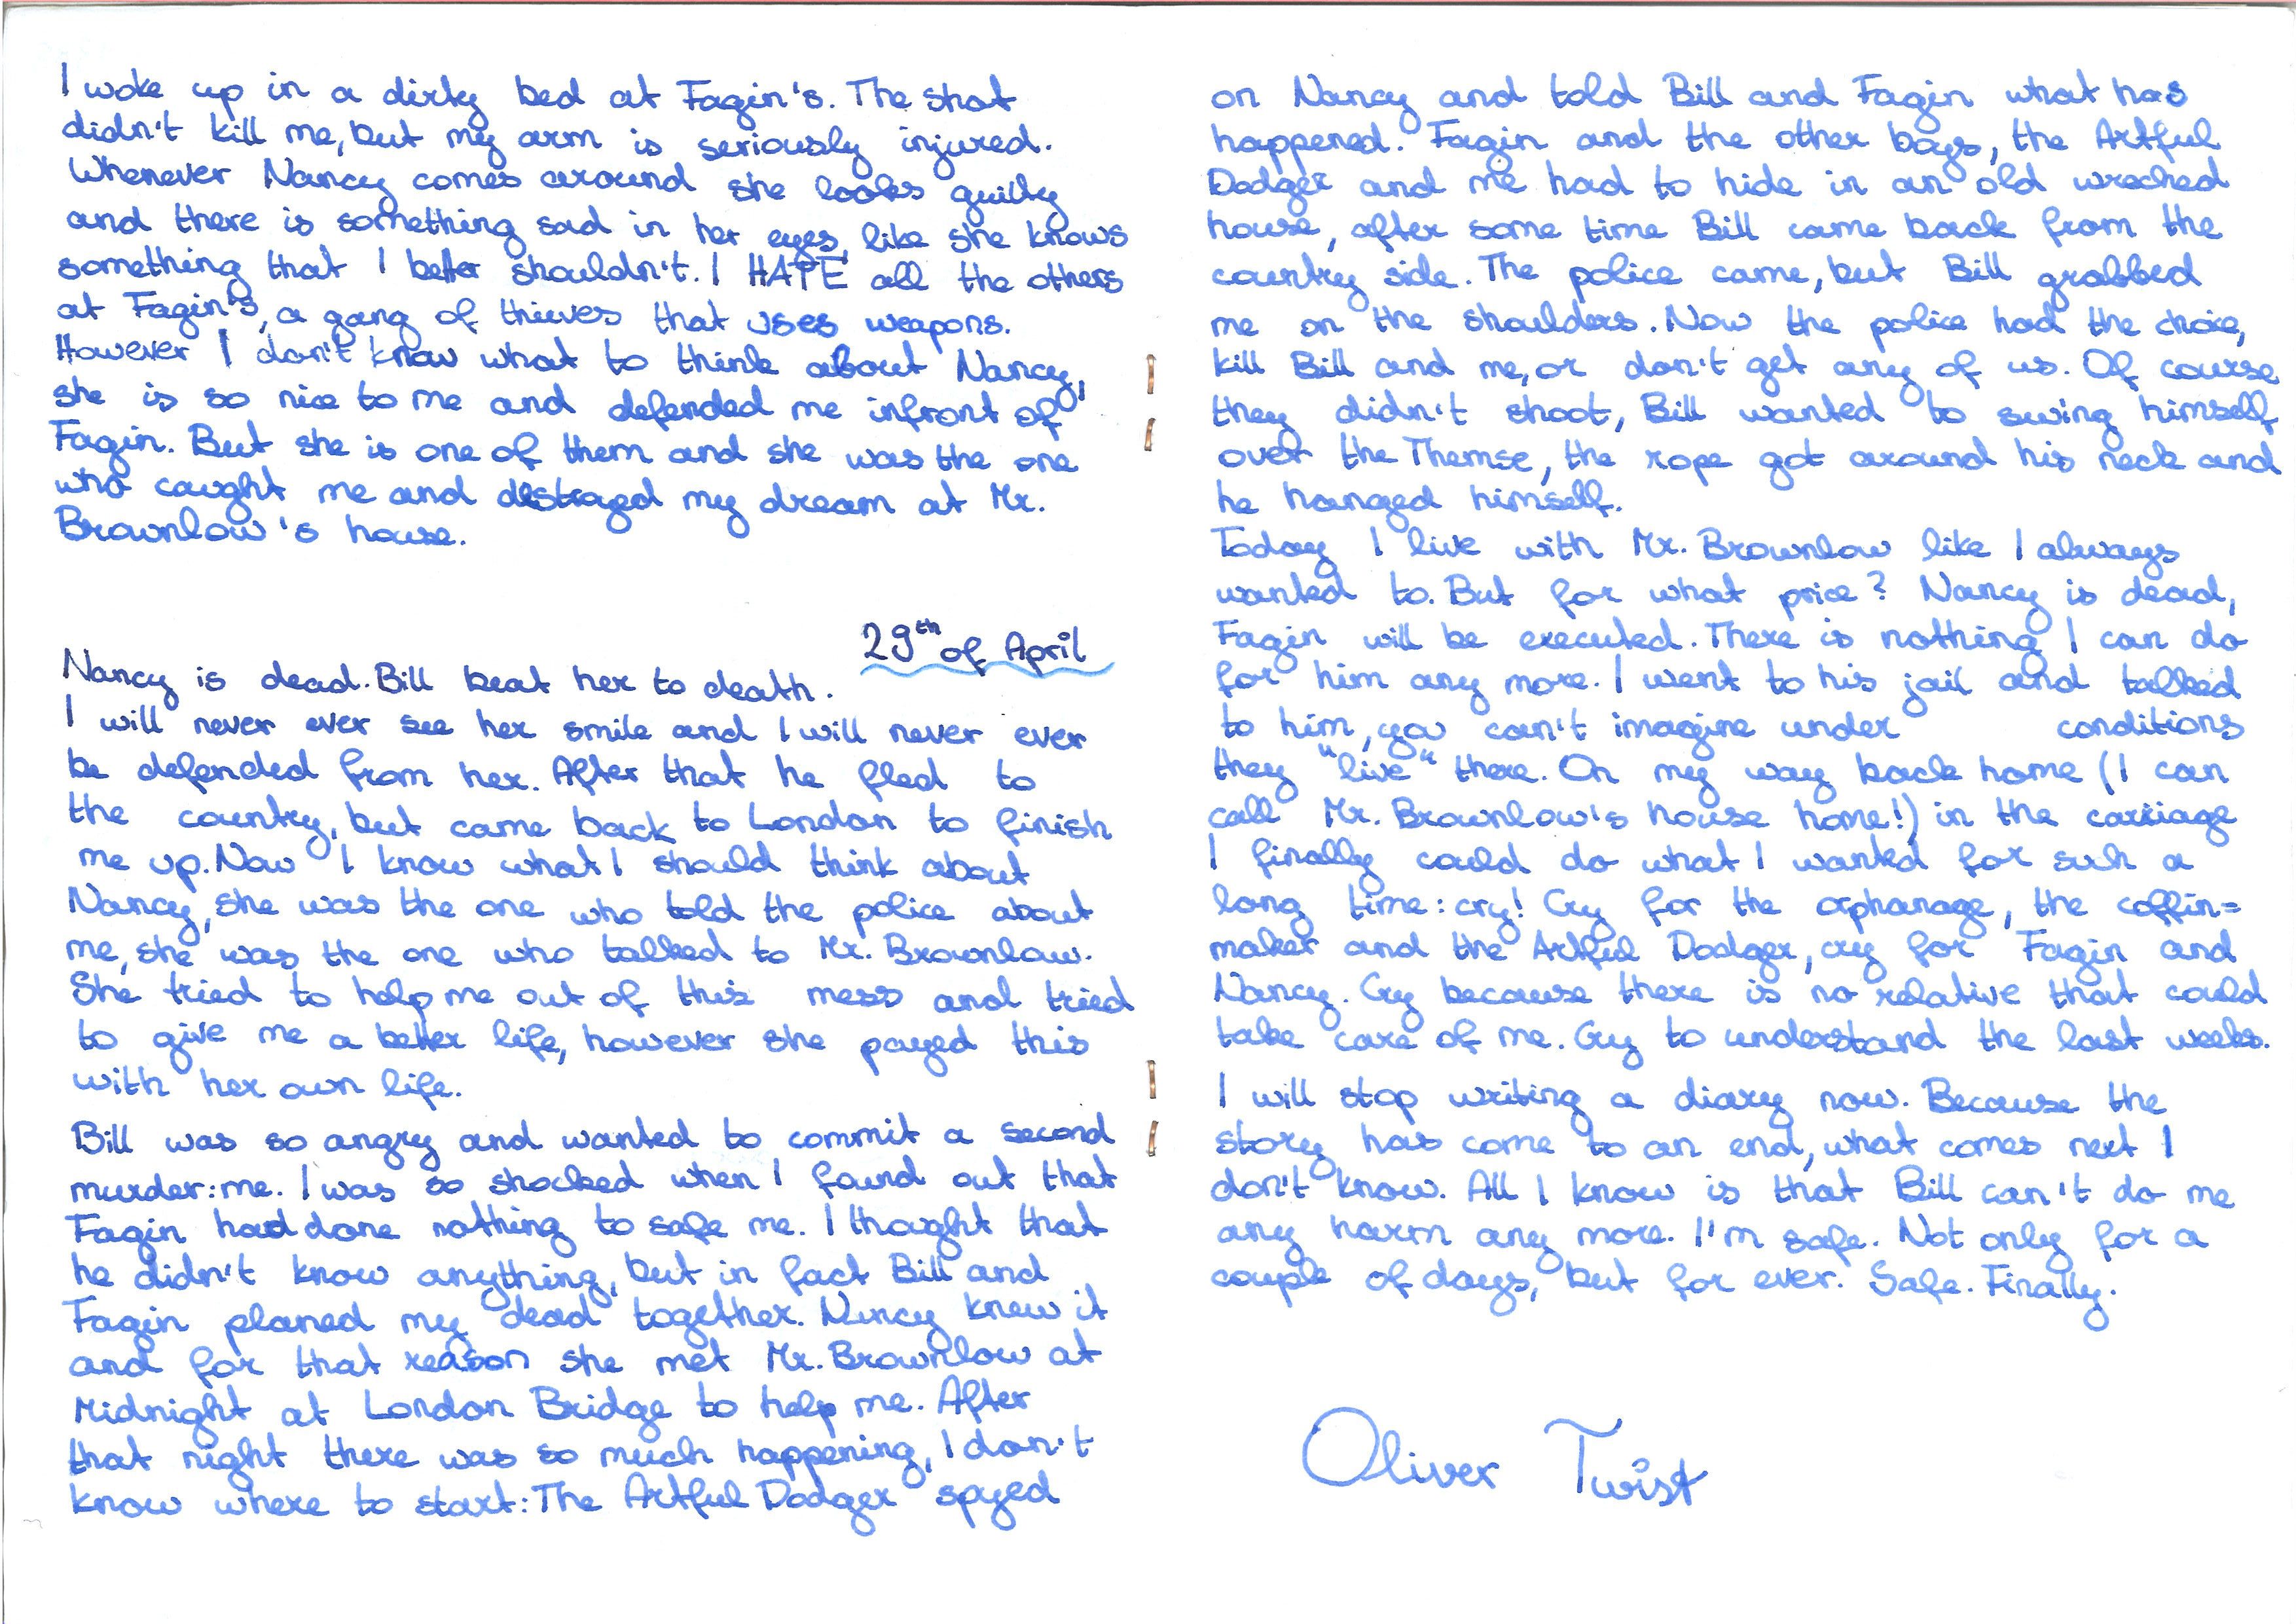 I woke up in a dirty bed at Fagin's. The shot
didn't kill me, but my arm is seriously injured.
Whenever Nancy comes around she looks guilty
and there is something sad in her eyes, like she knows
something that I better shouldn't. I HATE all the others
at Fagin's, a gang of thieves that uses weapons.
However I don't know what to think about Nancy,
she is so nice to me and defended me infront of
Fagin. But she is one of them and she was the one
who caught me and destroyed my dream at Mr.
Brownlow's house.
29th of April
Nancy is dead. Bill beat her to death.
I will never ever see her smile and I will never ever
be defended from her. After that he fled to
the country, but came back to London to finish
me up. Now I know what I should think about
Nancy, she was the one who told the police about
me, she was the one who talked to Mr. Brownlow.
She tried to help me out of this mess and tried
to give me a better life, however she payed this
with her own life.
Bill was so angry and wanted to commit a second
murder: me. I was so shocked when I found out that
Fagin had done nothing to safe me. I thought that
he didn't know anything, but in fact Bill and
Fagin planed my dead together. Nancy knew it
and for that reason she met Mr. Brownlow at
Midnight at London Bridge to help me. After
that night there was so much happening, I don't
know where to start: The Artful Dodger spyed
on Nancy and told Bill and Fagin what has
happened. Fagin and the other boys, the Artful
Dodger and me had to hide in an old wrecked
house, after some time Bill came back from the
country side. The police came, but Bill grabbed
me on the shoulders. Now the police had the choie,
kill Bill and me, or don't get any of us. Of course
they didn't shoot, Bill wanted to swing himself
over the Themse, the rope got around his neck and
he hanged himself.
Today I live with Mr. Brownlow like I always
wanted to. But for what price? Nancy is dead,
Fagin will be executed. There is nothing I can do
for him any more. I went to his jail and talked
to him, you can't imagine under conditions
they "live" there. On my way back home (I can
call Mr. Brownlow's house home!) in the carriage
I finally could do what I wanted for such a
long time: cry! Cry for the orphanage, the coffin=
maker and the Artful Dodger, cry for Fagin and
Nancy. Cry because there is no relative that could
take care of me. Cry to understand the last weeks.
I will stop writing a diary now. Because the
story has come to an end, what comes next I
don't know. All I know is that Bill can't do me
any harm any more. I'm safe. Not only for a
couple of days, but for ever. Safe. Finally.
Oliver Twist